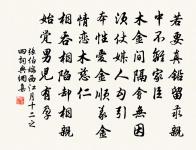 若要真鉛留汞親
中不離家臣
木金間隔會無因
須仗媒人勾引
木性愛金順義金
情戀木慈仁
相吞相啗卻相親
始覺男兒有孕
張伯端西江月十二之
四詞